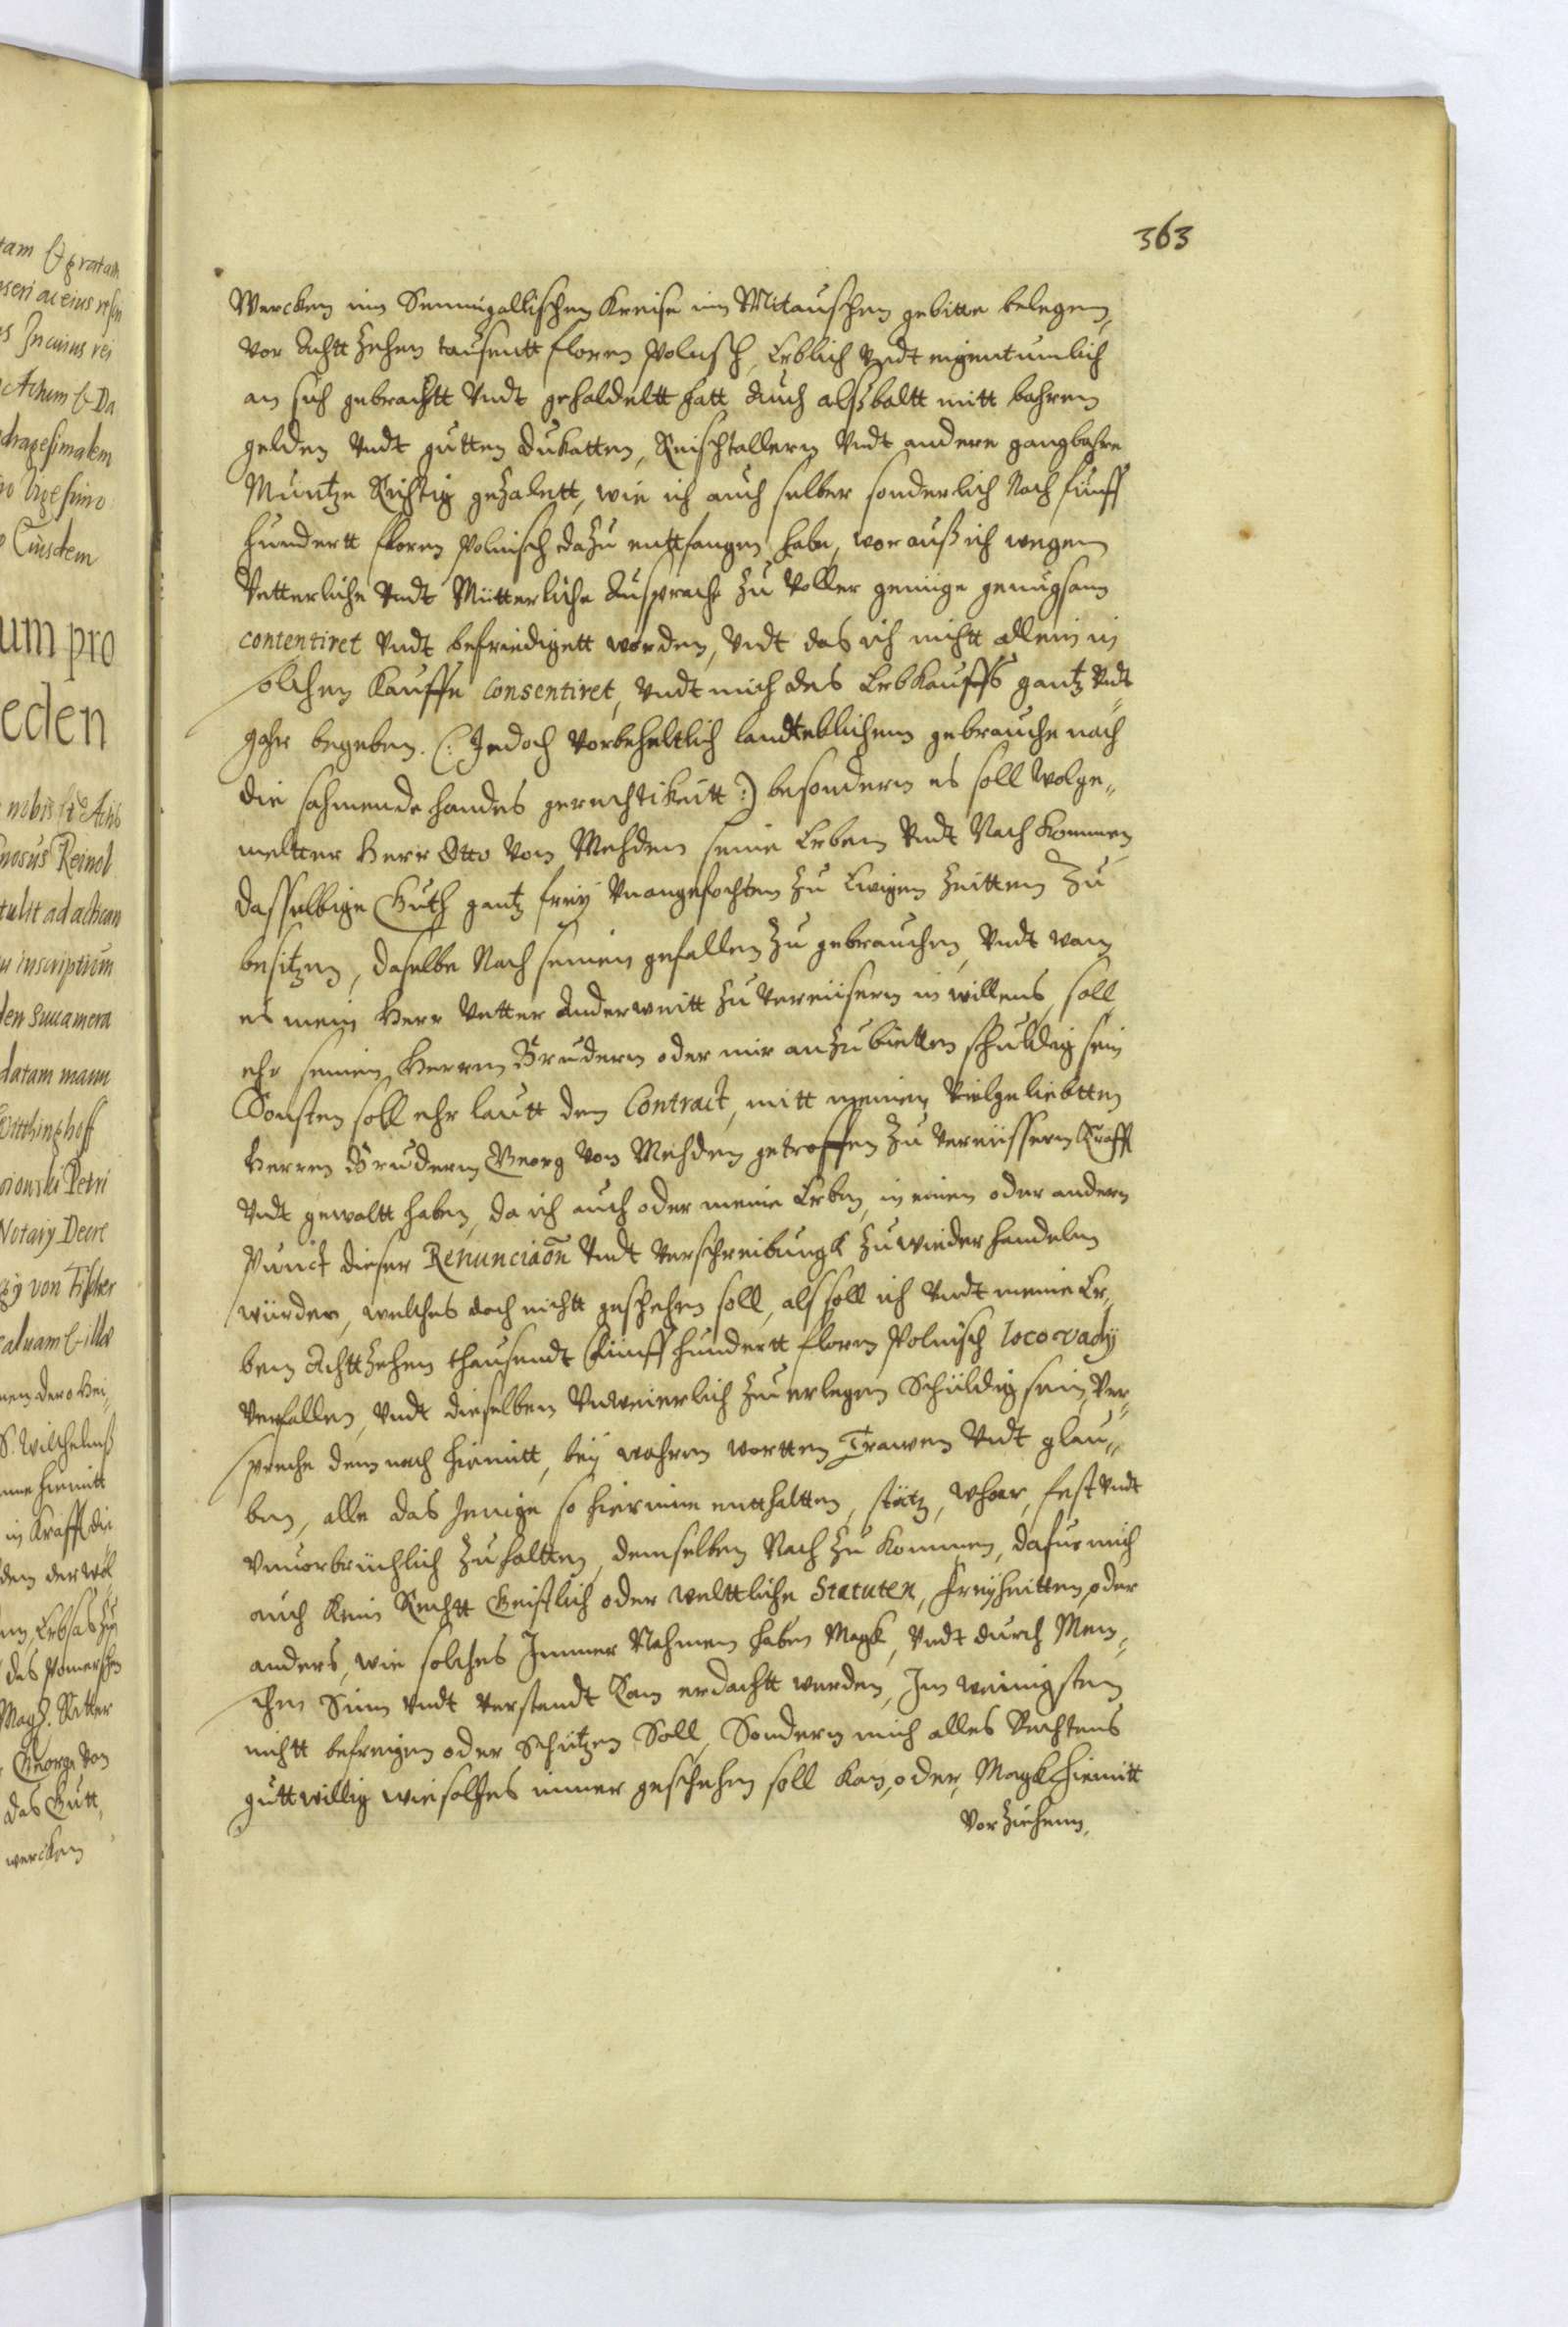 363
Wercken im Semmigallischen Kreise im Mitauschen gebitte belegen,
vor Achtt Zehen tausentt floren Polnisch, Erblich Vndt eigentumlich
an sich gebrachtt Vndt gehaldeltt hatt Auch alßbaltt mitt bahren
gelden Vndt gutten Dukatten, Reischtallern Vndt andere gangbahre
Müntze Richtig gezalett, wie ich auch selber sonderlich Noch fünff
hundertt floren Polnisch dazu entfangen habe, vorauß ich wegen
Vetterliche Vndt Mütterliche Ansprache zu Voller genüge genugsam
contentiret Vndt befriedigett worden, Vndt das ich nichtt allein in
solchen Kauffe consentiret, Vndt mich des Erbkauffs gantz Vndt
gahr begeben. (: Jedoch Vorbeheltlich landteblichem gebrauche nach
die sahmende handes gerechtikeitt :) besondern es soll Wolge„
meltter Herr Otto Von Mehden seine Erben Vndt Nach kommen
dasselbige Guth gantz freÿ Vnangefochten zu Ewigen Zeitten zu
besitzen, daselbe Nach seinen gefallen zu gebrauchen, Vndt wan
es mein Herr Vetter Anderweitt zu Vereüsern in willens, soll
ehr seinen Herren Brudern oder mir anzubietten schuldig sein
Sonsten soll ehr lautt dem Contract, mitt meinen Vielgeliebtten
Herren Brudern Georg Von Mehden getroffen zu Vereüssern Krafft
Vndt gewaltt haben, da ich auch oder meine Erben, in einen oder andern
Punct dieser Renunciaõn Vndt Verschreibungk zuwieder handelen
würden, welches doch nichtt geschehen soll, als soll ich Vndt meine Er„
ben Achttzehen thausendt Fünff hundertt floren Polnisch loco vadÿ
Verfallen, Vndt dieselben Vnweierlich zu erlegen Schüldig sein, Ver„
spreche dem nach hiemitt, beÿ wahren wortten Trawen Vndt glau„
ben, alle das Jenige so hierinne entthaltten, stätz, whar, fest Vndt
Vnuorbrüchlich zuhaltten, demselben Nach zu kommen, dafur mich
auch kein Rechtt Geistlich oder welttliche Statuten, freÿheitten, oder
anders, wie solches Immer Nahmen haben Magk, Vndt durch Men„
chen Sinn Vndt Verstandt kan erdachtt werden, Im weinigsten
nichtt befreigen oder Schützen Soll, Sondern mich alles Rechtens
guttwillig wie solches immer geschehen soll kan, oder, Magk hiemitt
Vorziehenn,